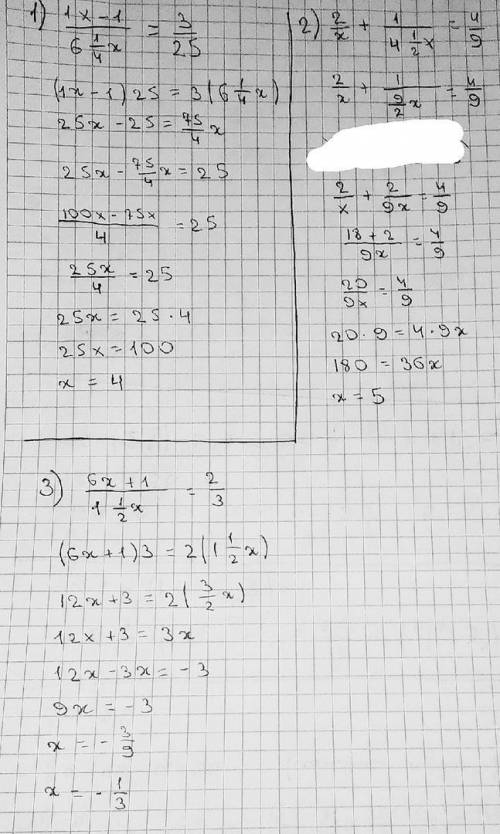 1) (1x-1)/(6 1/4 x) = 3/25
(1x-1)25 = 3(6 1/4 x)
25x-25 = 75/4 x
25x - 75/4 x = 25
(100x-75x)/4 = 25
25x/4 = 25
25x = 25·4
25x = 100
x = 4
2) 2/x + 1/(4 1/2 x) = 4/9
2/x + 1/(9/2 x) = 4/9
2/x + 2/9x = 4/9
(18+2)/9x = 4/9
20/9x = 4/9
20·9 = 4·9x
180 = 36x
x = 5
3) (6x+1)/(1 1/2 x) = 2/3
(6x+1)3 = 2(1 1/2 x)
12x+3 = 2(3/2 x)
12x+3 = 3x
12x-3x = -3
9x = -3
x = -3/9
x = -1/3